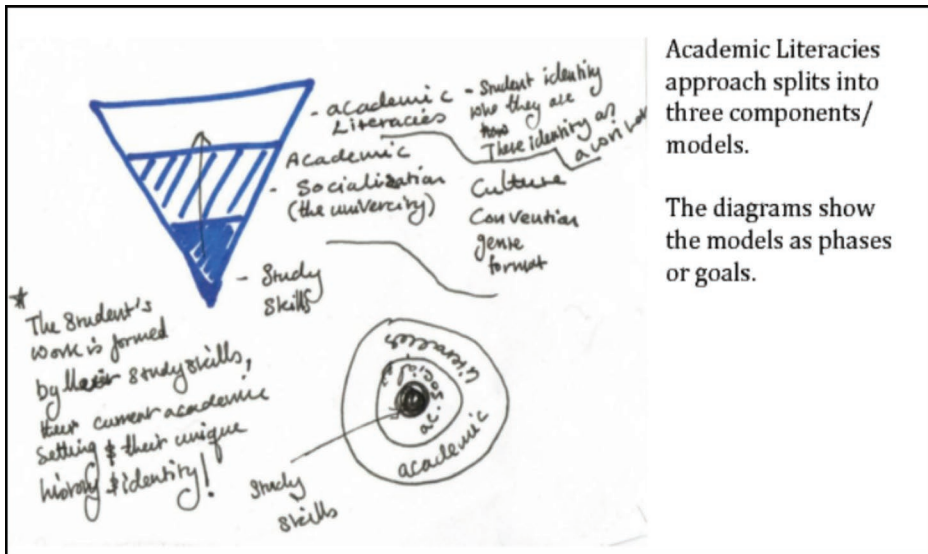 - academic
Literacies
- Student identity
who they are
These identity as?
Academic
- Socialization
(the univercity)
Culture
Convention
genre
format
- Study
Skills
* The Student's
work is formed
by their study skills,
their current academic
setting & their unique
history & identity!
Literacies
ac. social
academic
Study
Skills
Academic Literacies
approach splits into
three components/
models.
The diagrams show
the models as phases
or goals.